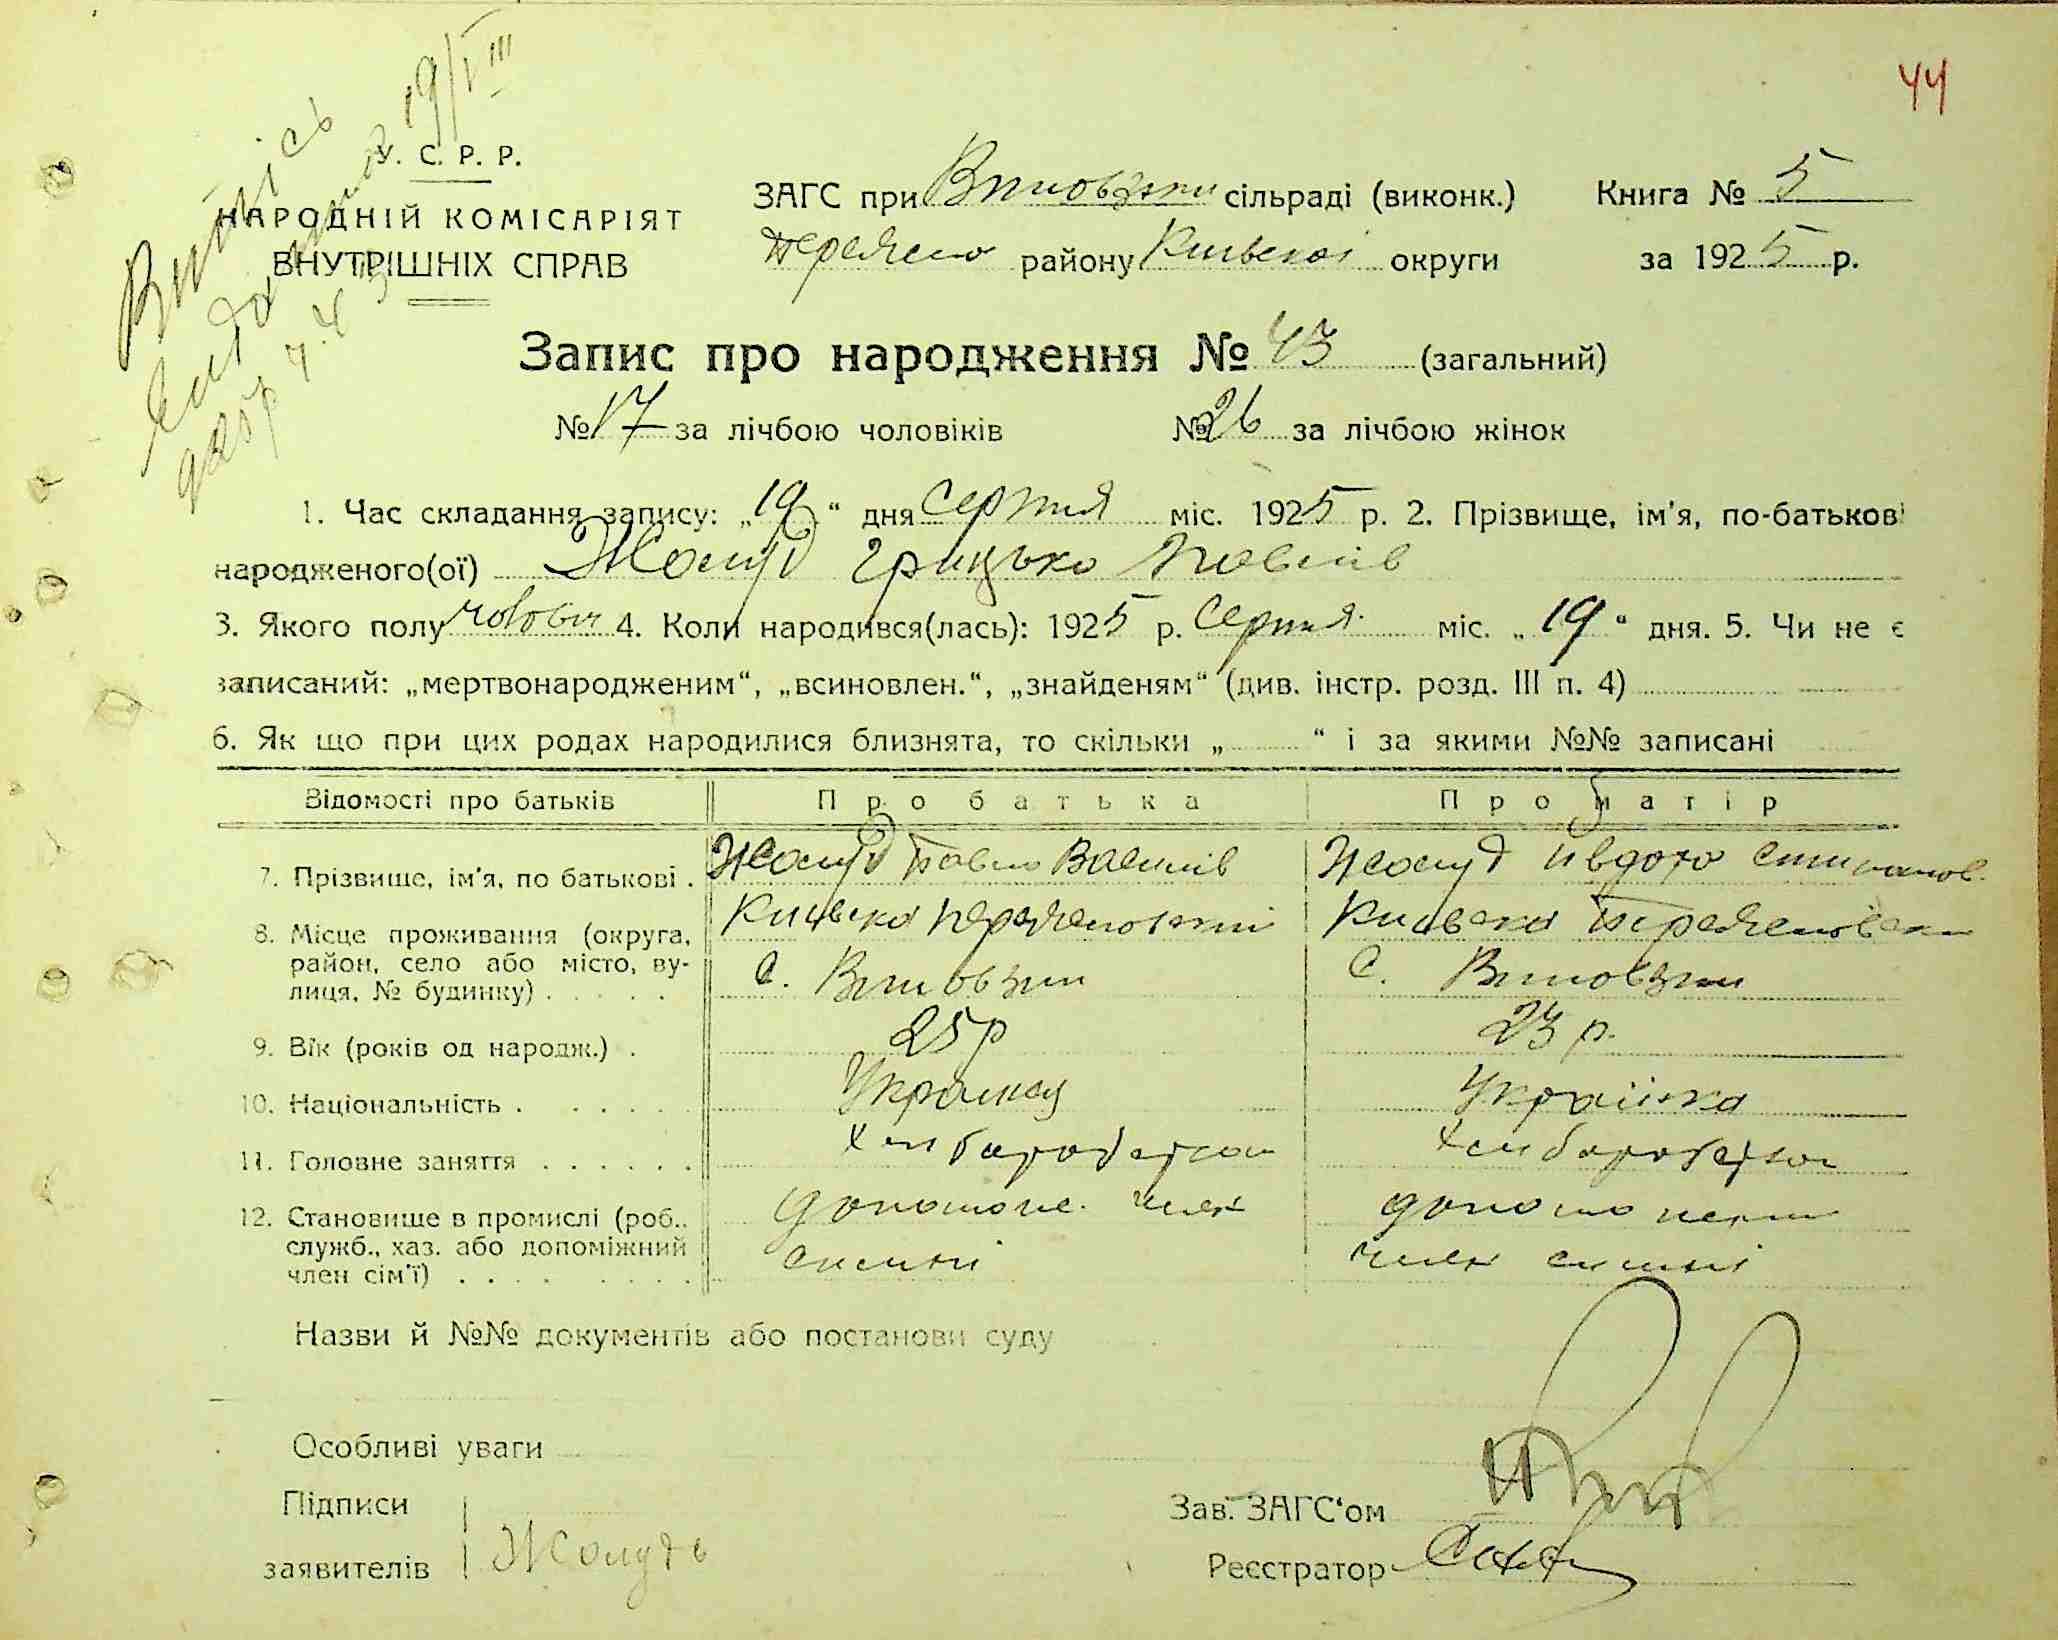 44
Випись
видана 19/VIII
У. С. Р. Р.
НАРОДНІЙ КОМІСАРІЯТ
ВНУТРІШНІХ СПРАВ
ЗАГС при сільраді (виконк.) Книга № 5
району Київської округи за 1925 р.
Запис про народження № 43 (загальний)
№ 17 за лічбою чоловіків № 26 за лічбою жінок
1. Час складання запису: „19“ дня серпня міс. 1925 р. 2. Прізвище, ім'я, по-батькові
народженого(ої) Жолуд Грицько Павлів
3. Якого полу чоловіч 4. Коли народився(лась): 1925 р. Серпня міс. „19“ дня. 5. Чи не є
записаний: „мертвонародженим“, „всиновлен.“, „знайденям“ (див. інстр. розд. III п. 4)
6. Як що при цих родах народилися близнята, то скільки „ “ і за якими №№ записані
Відомості про батьків Про батька Про матір
7. Прізвище, ім'я, по батькові . Жолуд Павло Василів Жолуд Явдоха Степанов.
8. Місце проживання (округа, Київська Київська
район, село або місто, ву- с. с.
лиця, № будинку) . . . . .
9. Вік (років од народж.) . 25 р 23 р.
10. Національність . . . . . Українец Українка
11. Головне заняття . . . . . . хліборобство хліборобство
12. Становище в промислі (роб., допомож. член допоможний
служб., хаз. або допоміжний сімьї член сімьї
член сім'ї) . . . . . . . .
Назви й №№ документів або постанови суду
Особливі уваги
Підписи
заявителів Жолудь
Зав. ЗАГС'ом
Реєстратор